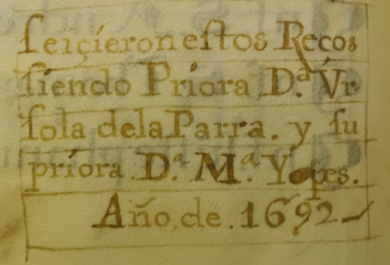 ſeiçieron eſtos Recos
ſiendo Priora, D.ª Vr
ſola dela Parra. y ſu
príora. D.ª M.ª Yepes.
Año, de. 1692